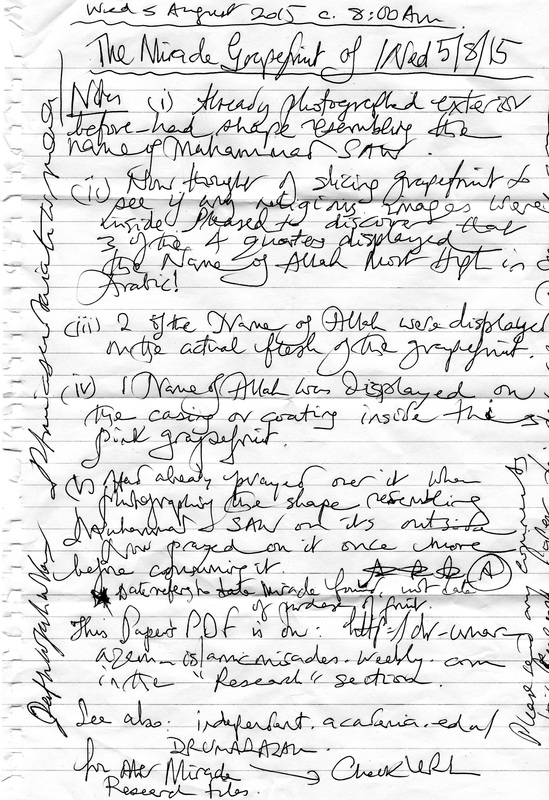 Wed 5 August 2015 c. 8:00Am
The Miracle Grapefruit of Wed 5/8/15
Notes (i) Already photographed exterior
before - had shape resembling the
name of Muhammad SAW.
(ii) Now thought of slicing grapefruit to
see if any religious images were
inside. Pleased to discover that
3 of the 4 quarters displayed
the Name of Allah Most High in
Arabic!
(iii) 2 of the Name of Allah were displayed
on the actual flesh of the grapefruit.
(iv) 1 Name of Allah was displayed on
the casing or coating inside the
pink grapefruit.
(v) Had already prayed over it when
photographing the shape resembling
Muhammad SAW on its outside
Now prayed on it once more
before consuming it.
A
Date refers to date Miracle found, not date
of purchase of fruit.
This Paper's PDF is on: http://dr-umar-
azam-islamicmiracles.weebly.com
in the "Research" section.
See also: independent.academia.edu/
DRUMARAZAM
for other Miracle → Check URL
Research files.
Please send any comments